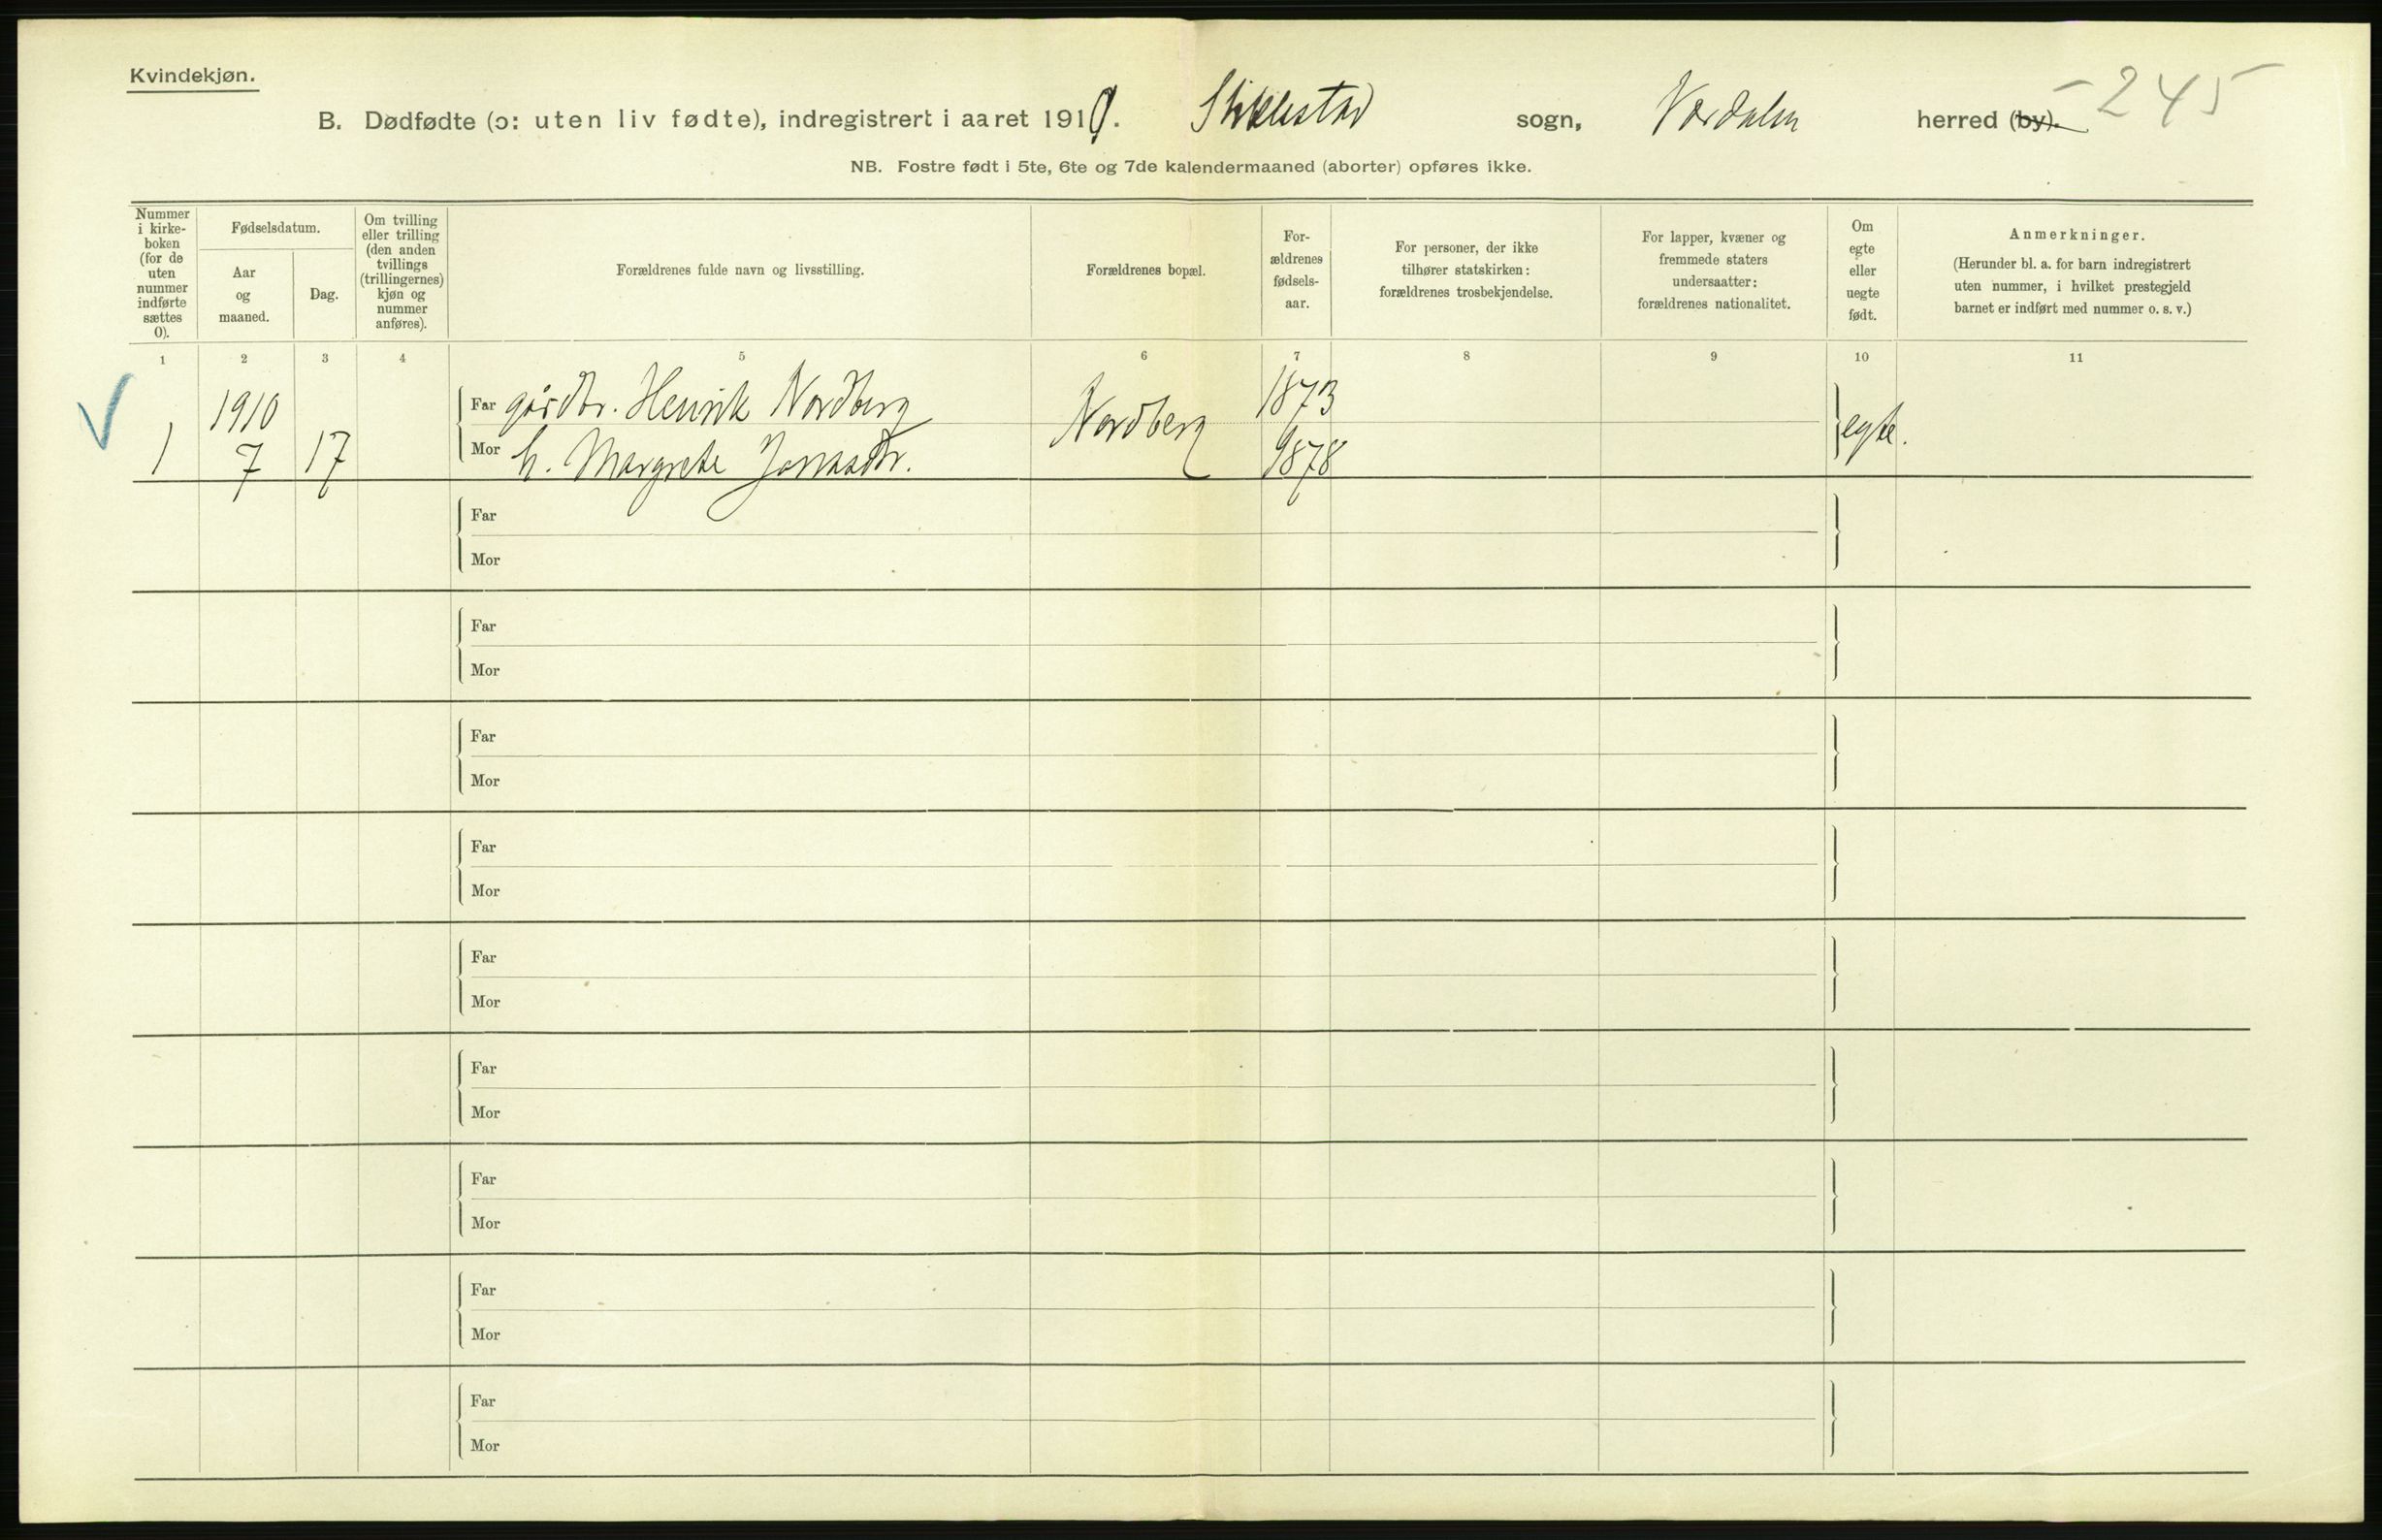 Kvindekjøn.
B. Dødfødte (ɔ: uten liv fødte), indregistrert i aaret 1910. Stiklestad sogn, Værdalen herred (by). - 245
NB. Fostre født i 5te, 6te og 7de kalendermaaned (aborter) opføres ikke.
Nummer
i kirke-
boken
(for de
uten
nummer
indførte
sættes
0).
Fødselsdatum.
Aar
og
maaned.
Dag.
Om tvilling
eller trilling
(den anden
tvillings
(trillingernes)
kjøn og
nummer
anføres).
Forældrenes fulde navn og livsstilling.
Forældrenes bopæl.
For-
ældrenes
fødsels-
aar.
For personer, der ikke
tilhører statskirken:
forældrenes trosbekjendelse.
For lapper, kvæner og
fremmede staters
undersaatter:
forældrenes nationalitet.
Om
egte
eller
uegte
født.
Anmerkninger.
(Herunder bl. a. for barn indregistrert
uten nummer, i hvilket prestegjeld
barnet er indført med nummer o. s. v.)
1 2 3 4 5 6 7 8 9 10 11
1 1910 7 17
Far gårdbr. Henrik Nordberg
Mor h. Margrete Jonasdtr.
Nordberg
1873
1878
egte.
Far
Mor
Far
Mor
Far
Mor
Far
Mor
Far
Mor
Far
Mor
Far
Mor
Far
Mor
Far
Mor